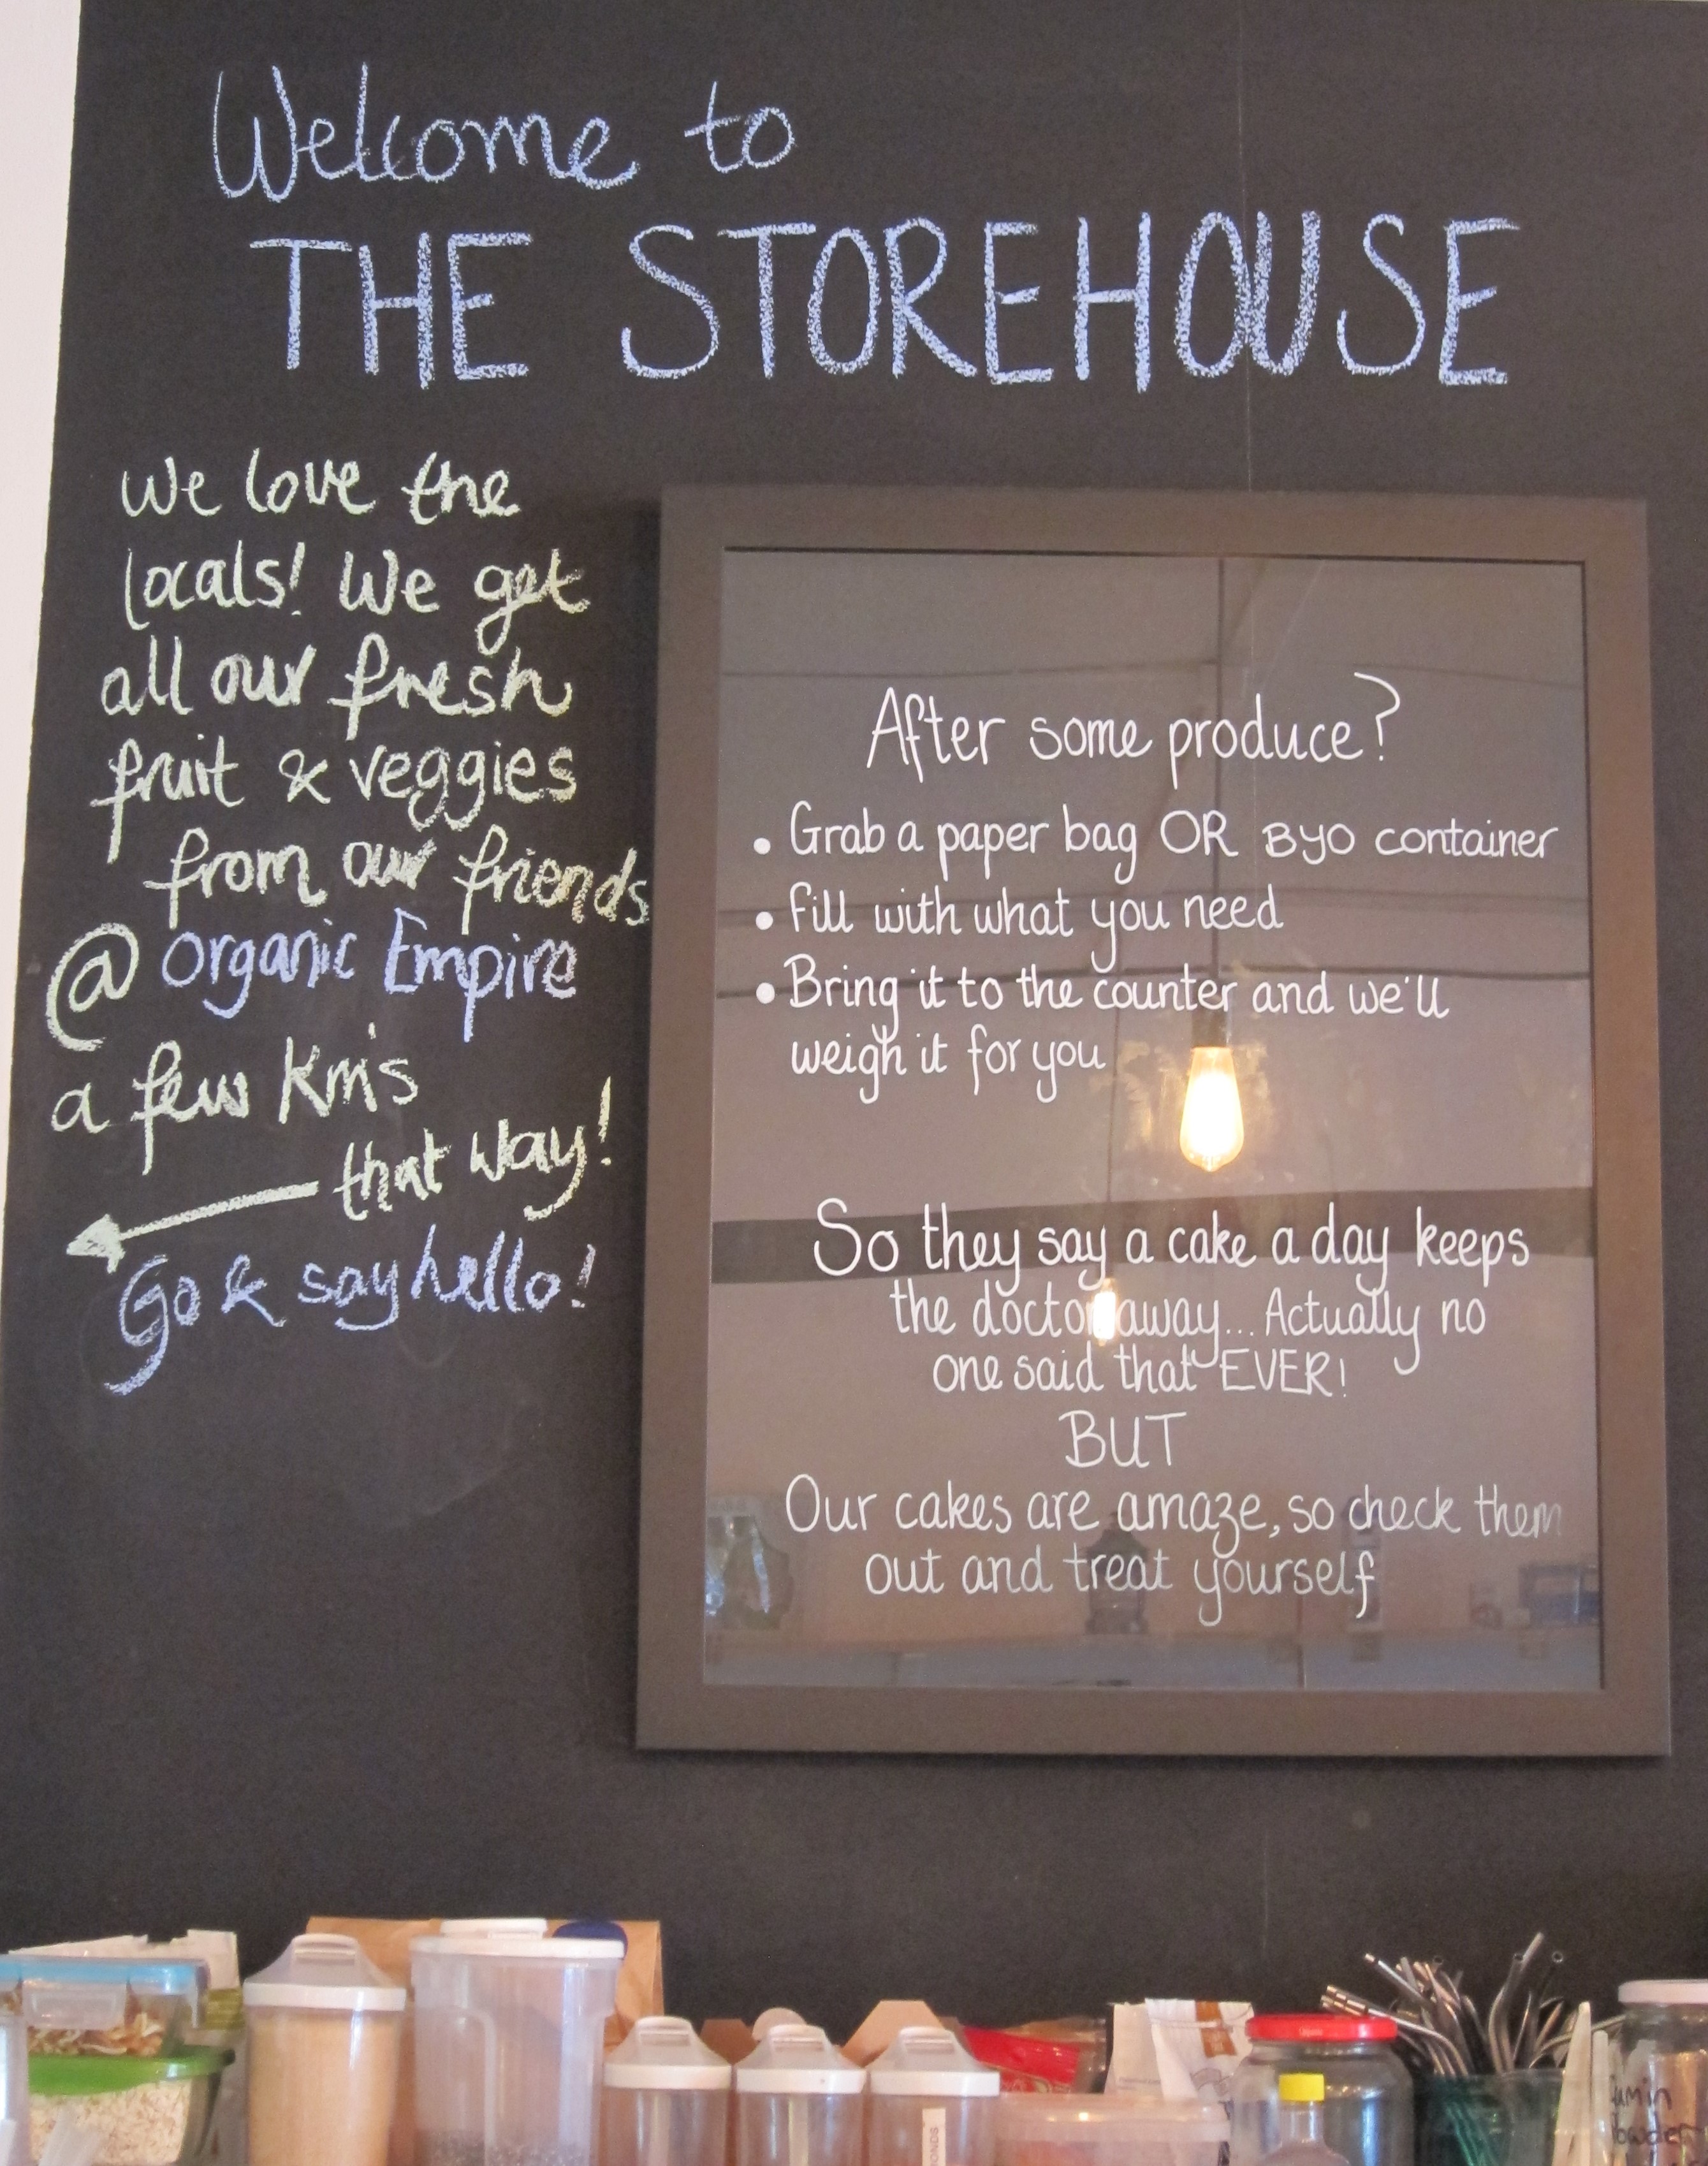 Welcome to
THE STOREHOUSE
We love the
locals! We get
all our fresh
fruit & veggies
from our friends
@ Organic Empire
a few Km's
that way!
Go & say hello!
After some produce?
• Grab a paper bag OR BYO container
• Fill with what you need
• Bring it to the counter and we'll
weigh it for you
So they say a cake a day keeps
the doctor away... Actually no
one said that EVER!
BUT
Our cakes are amaze, so check them
out and treat yourself